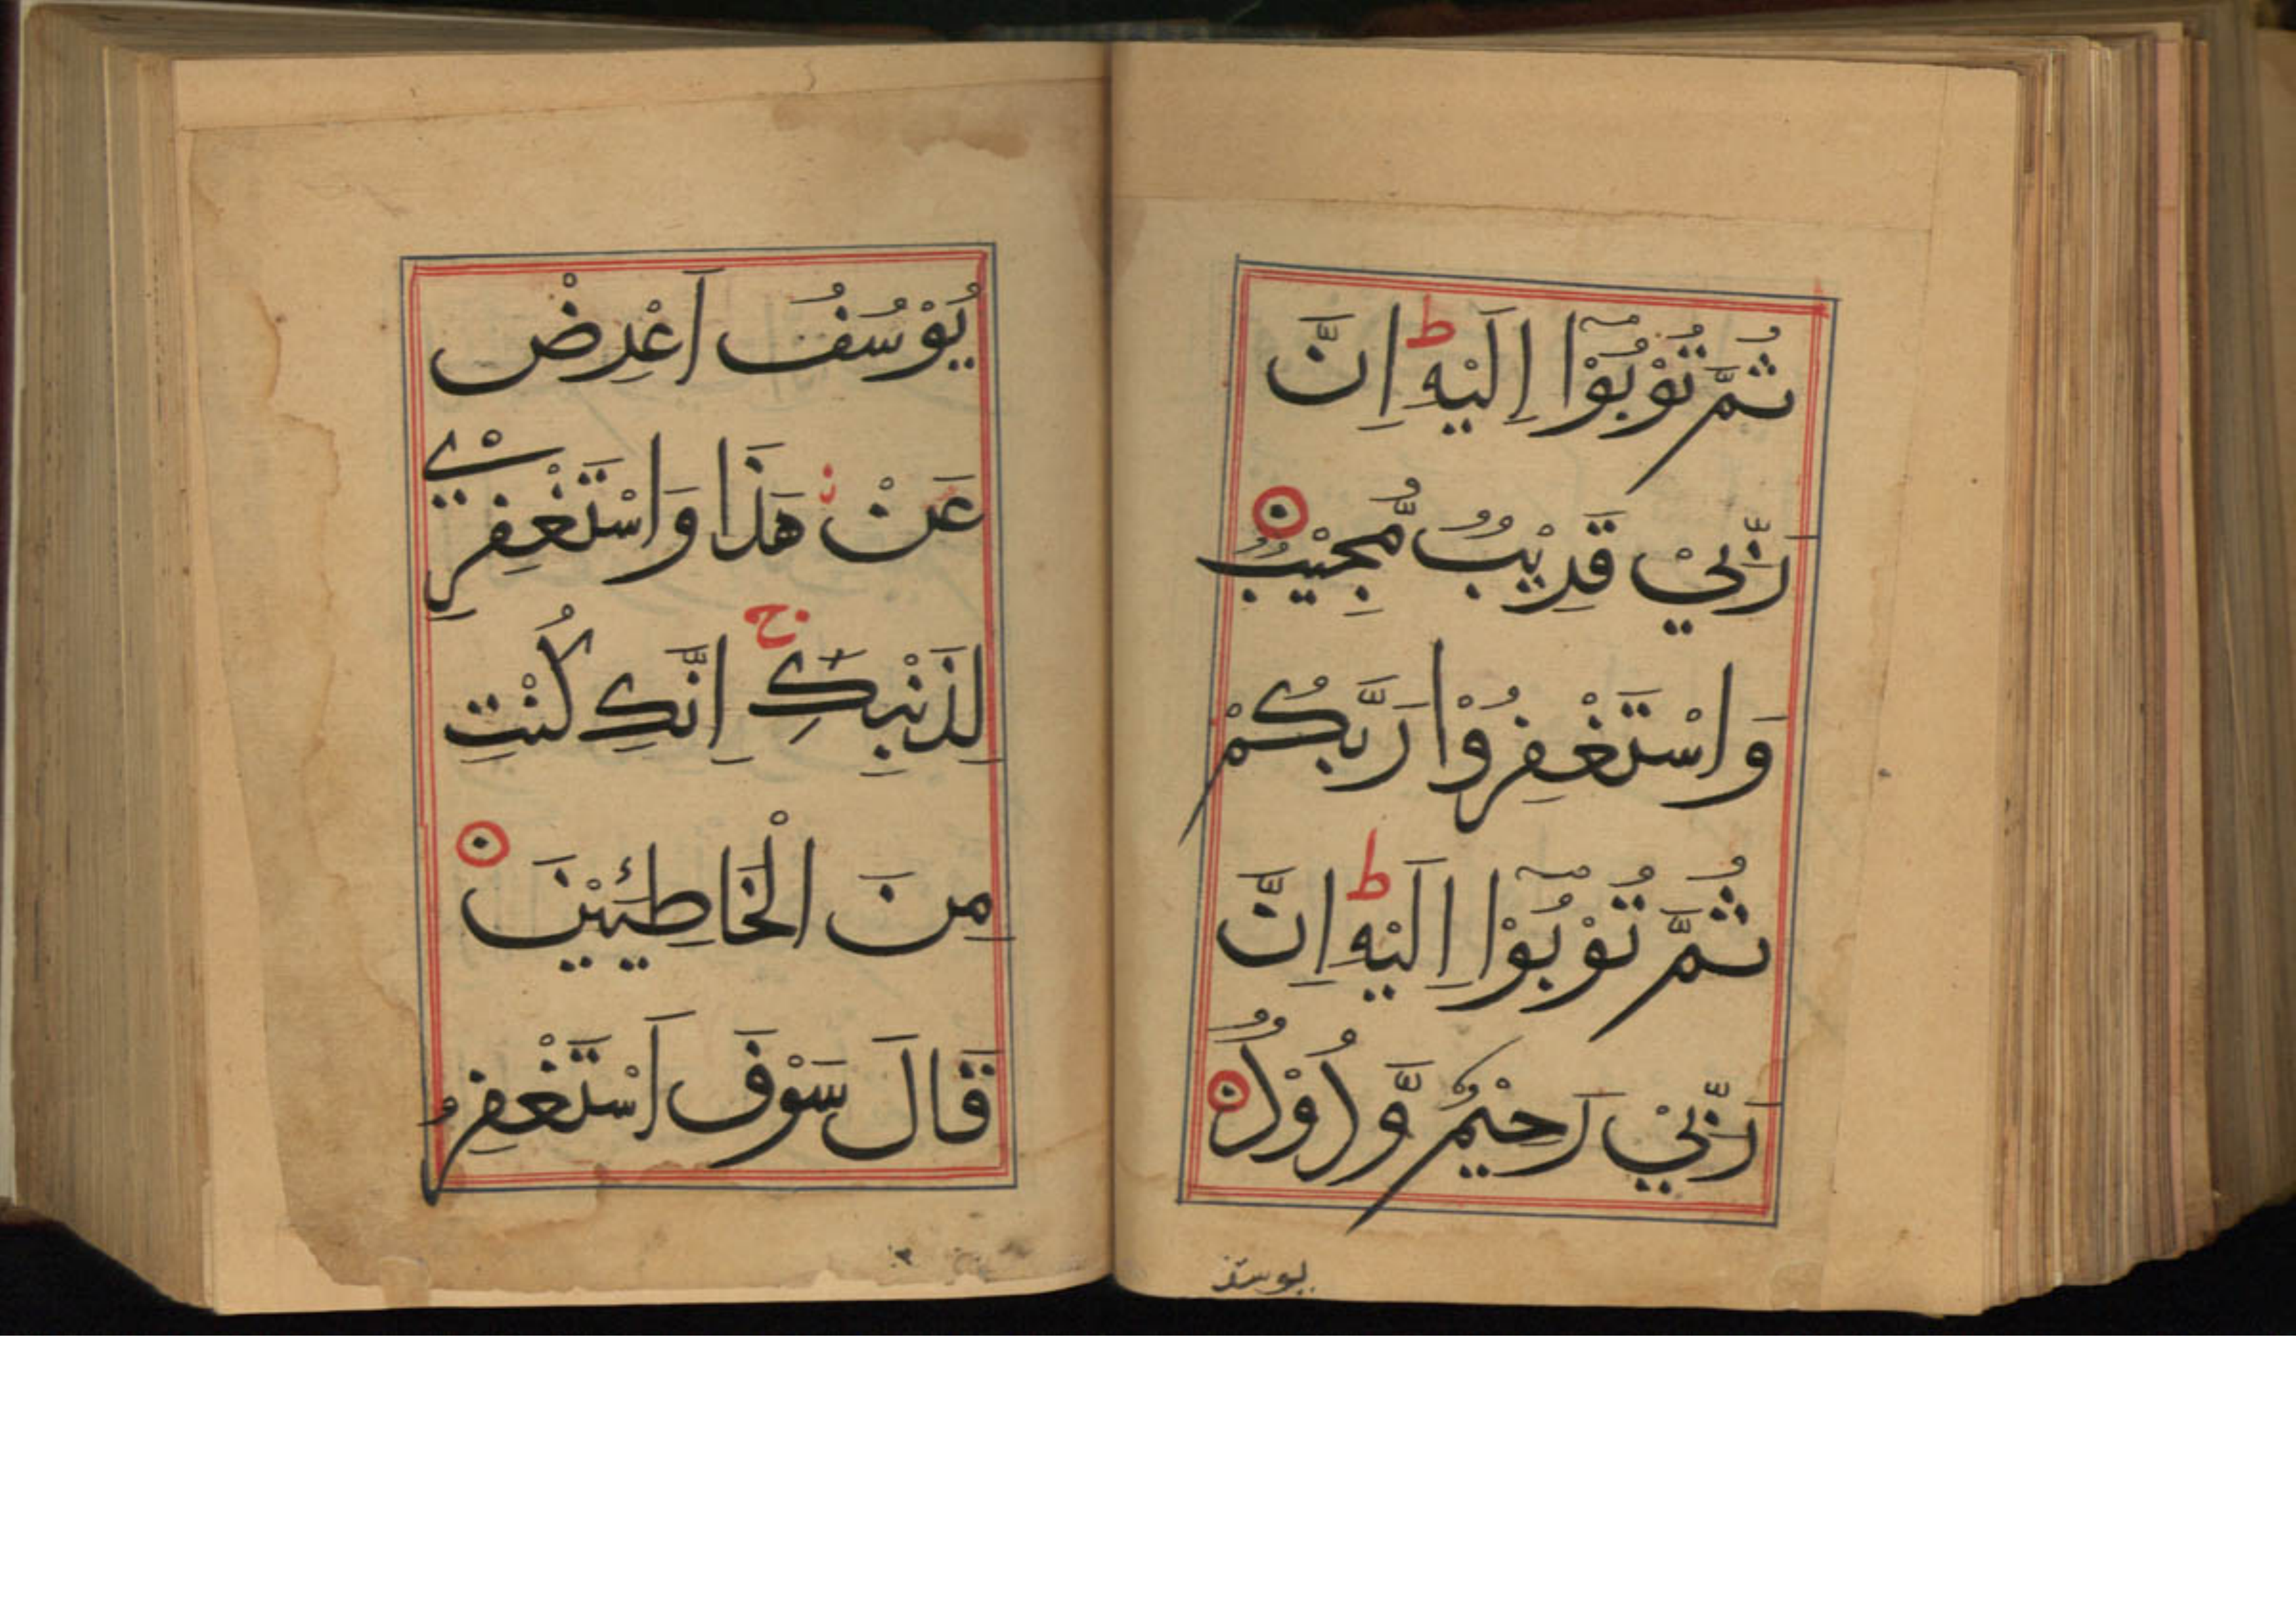 ثُمَّ تُوْبُوْٓا اِلَيْهِ ط اِنَّ
رَبِّيْ قَرِيْبٌ مُّجِيْبٌ
وَاسْتَغْفِرُوْا رَبَّكُمْ
ثُمَّ تُوْبُوْٓا اِلَيْهِ ط اِنَّ
رَبِّيْ رَحِيْمٌ وَّدُوْدٌ
يوسف
يُوْسُفُ اَعْرِضْ
عَنْ هَذَا وَاسْتَغْفِرِيْ
لِذَنْبِكِ ج اِنَّكِ كُنْتِ
مِنَ الْخَاطِئِيْنَ
قَالَ سَوْفَ اَسْتَغْفِرُ